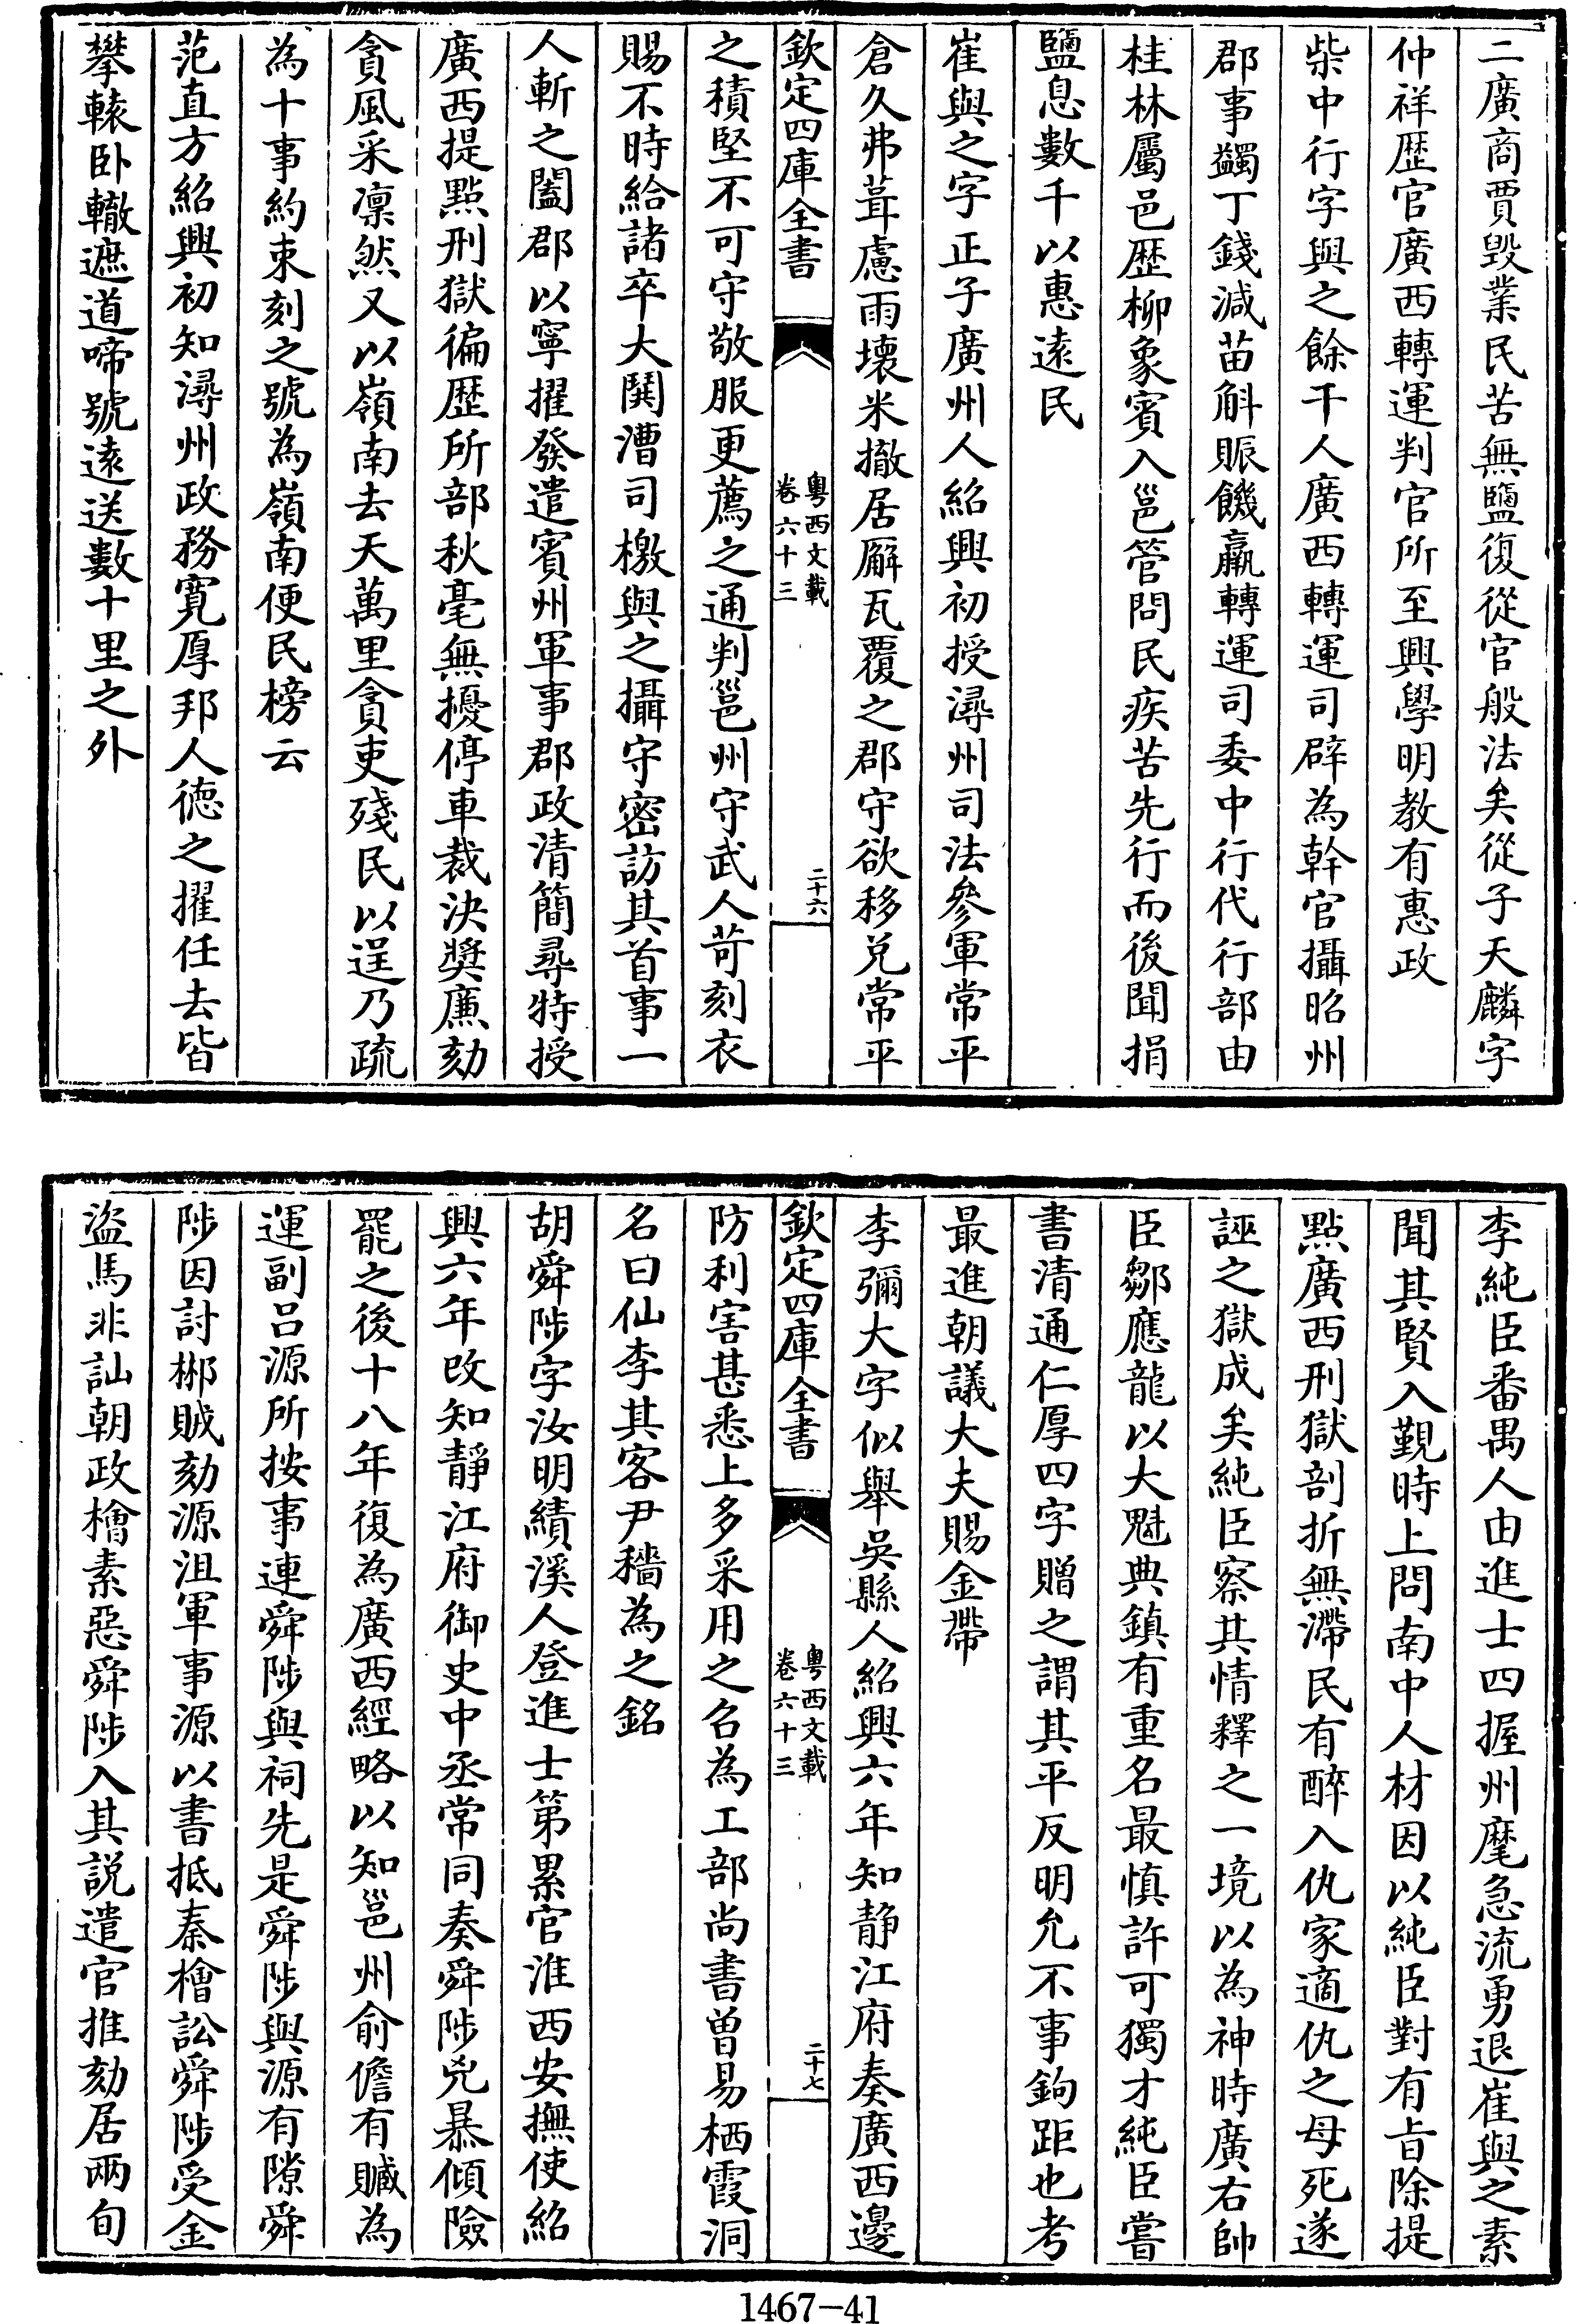 二廣商賈毀業民苦無鹽復從官般法矣從子天麟字
仲祥歴官廣西轉運判官所至興學明教有惠政
柴中行字與之餘干人廣西轉運司辟為幹官攝昭州
郡事蠲丁錢減苗斛賑饑羸轉運司委中行代行部由
桂林屬邑歴柳象賓入邕管問民疾苦先行而後聞捐
鹽息數千以惠逺民
崔與之字正子廣州人紹興初授潯州司法參軍常平
倉久弗葺慮雨壞米撤居廨瓦覆之郡守欲移兌常平
欽定四庫全書
粤西文載
卷六十三
二十六
之積堅不可守敬服更薦之通判邕州守武人苛刻衣
賜不時給諸卒大鬨漕司檄與之攝守密訪其首事一
人斬之闔郡以寧擢發遣賓州軍事郡政清簡尋特授
廣西提點刑獄徧歴所部秋毫無擾停車裁決獎廉劾
貪風采凛然又以嶺南去天萬里貪吏殘民以逞乃疏
為十事約束刻之號為嶺南便民榜云
范直方紹興初知潯州政務寛厚邦人徳之擢任去皆
攀轅卧轍遮道啼號逺送數十里之外
李純臣番禺人由進士四握州麾急流勇退崔與之素
聞其賢入覲時上問南中人材因以純臣對有旨除提
點廣西刑獄剖折無滯民有醉入仇家適仇之母死遂
誣之獄成矣純臣察其情釋之一境以為神時廣右帥
臣鄒應龍以大魁典鎮有重名最慎許可獨才純臣嘗
書清通仁厚四字贈之謂其平反明允不事鉤距也考
最進朝議大夫賜金帶
李彌大字似舉吳縣人紹興六年知静江府奏廣西邊
欽定四庫全書
粤西文載
卷六十三
二十七
防利害甚悉上多采用之召為工部尚書曽易栖霞洞
名曰仙李其客尹穡為之銘
胡舜陟字汝明績溪人登進士第累官淮西安撫使紹
興六年改知靜江府御史中丞常同奏舜陟兇暴傾險
罷之後十八年復為廣西經略以知邕州俞儋有贓為
運副呂源所按事連舜陟與祠先是舜陟與源有隙舜
陟因討郴賊劾源沮軍事源以書抵秦檜訟舜陟受金
盜馬非訕朝政檜素惡舜陟入其説遣官推劾居兩旬
1467-41